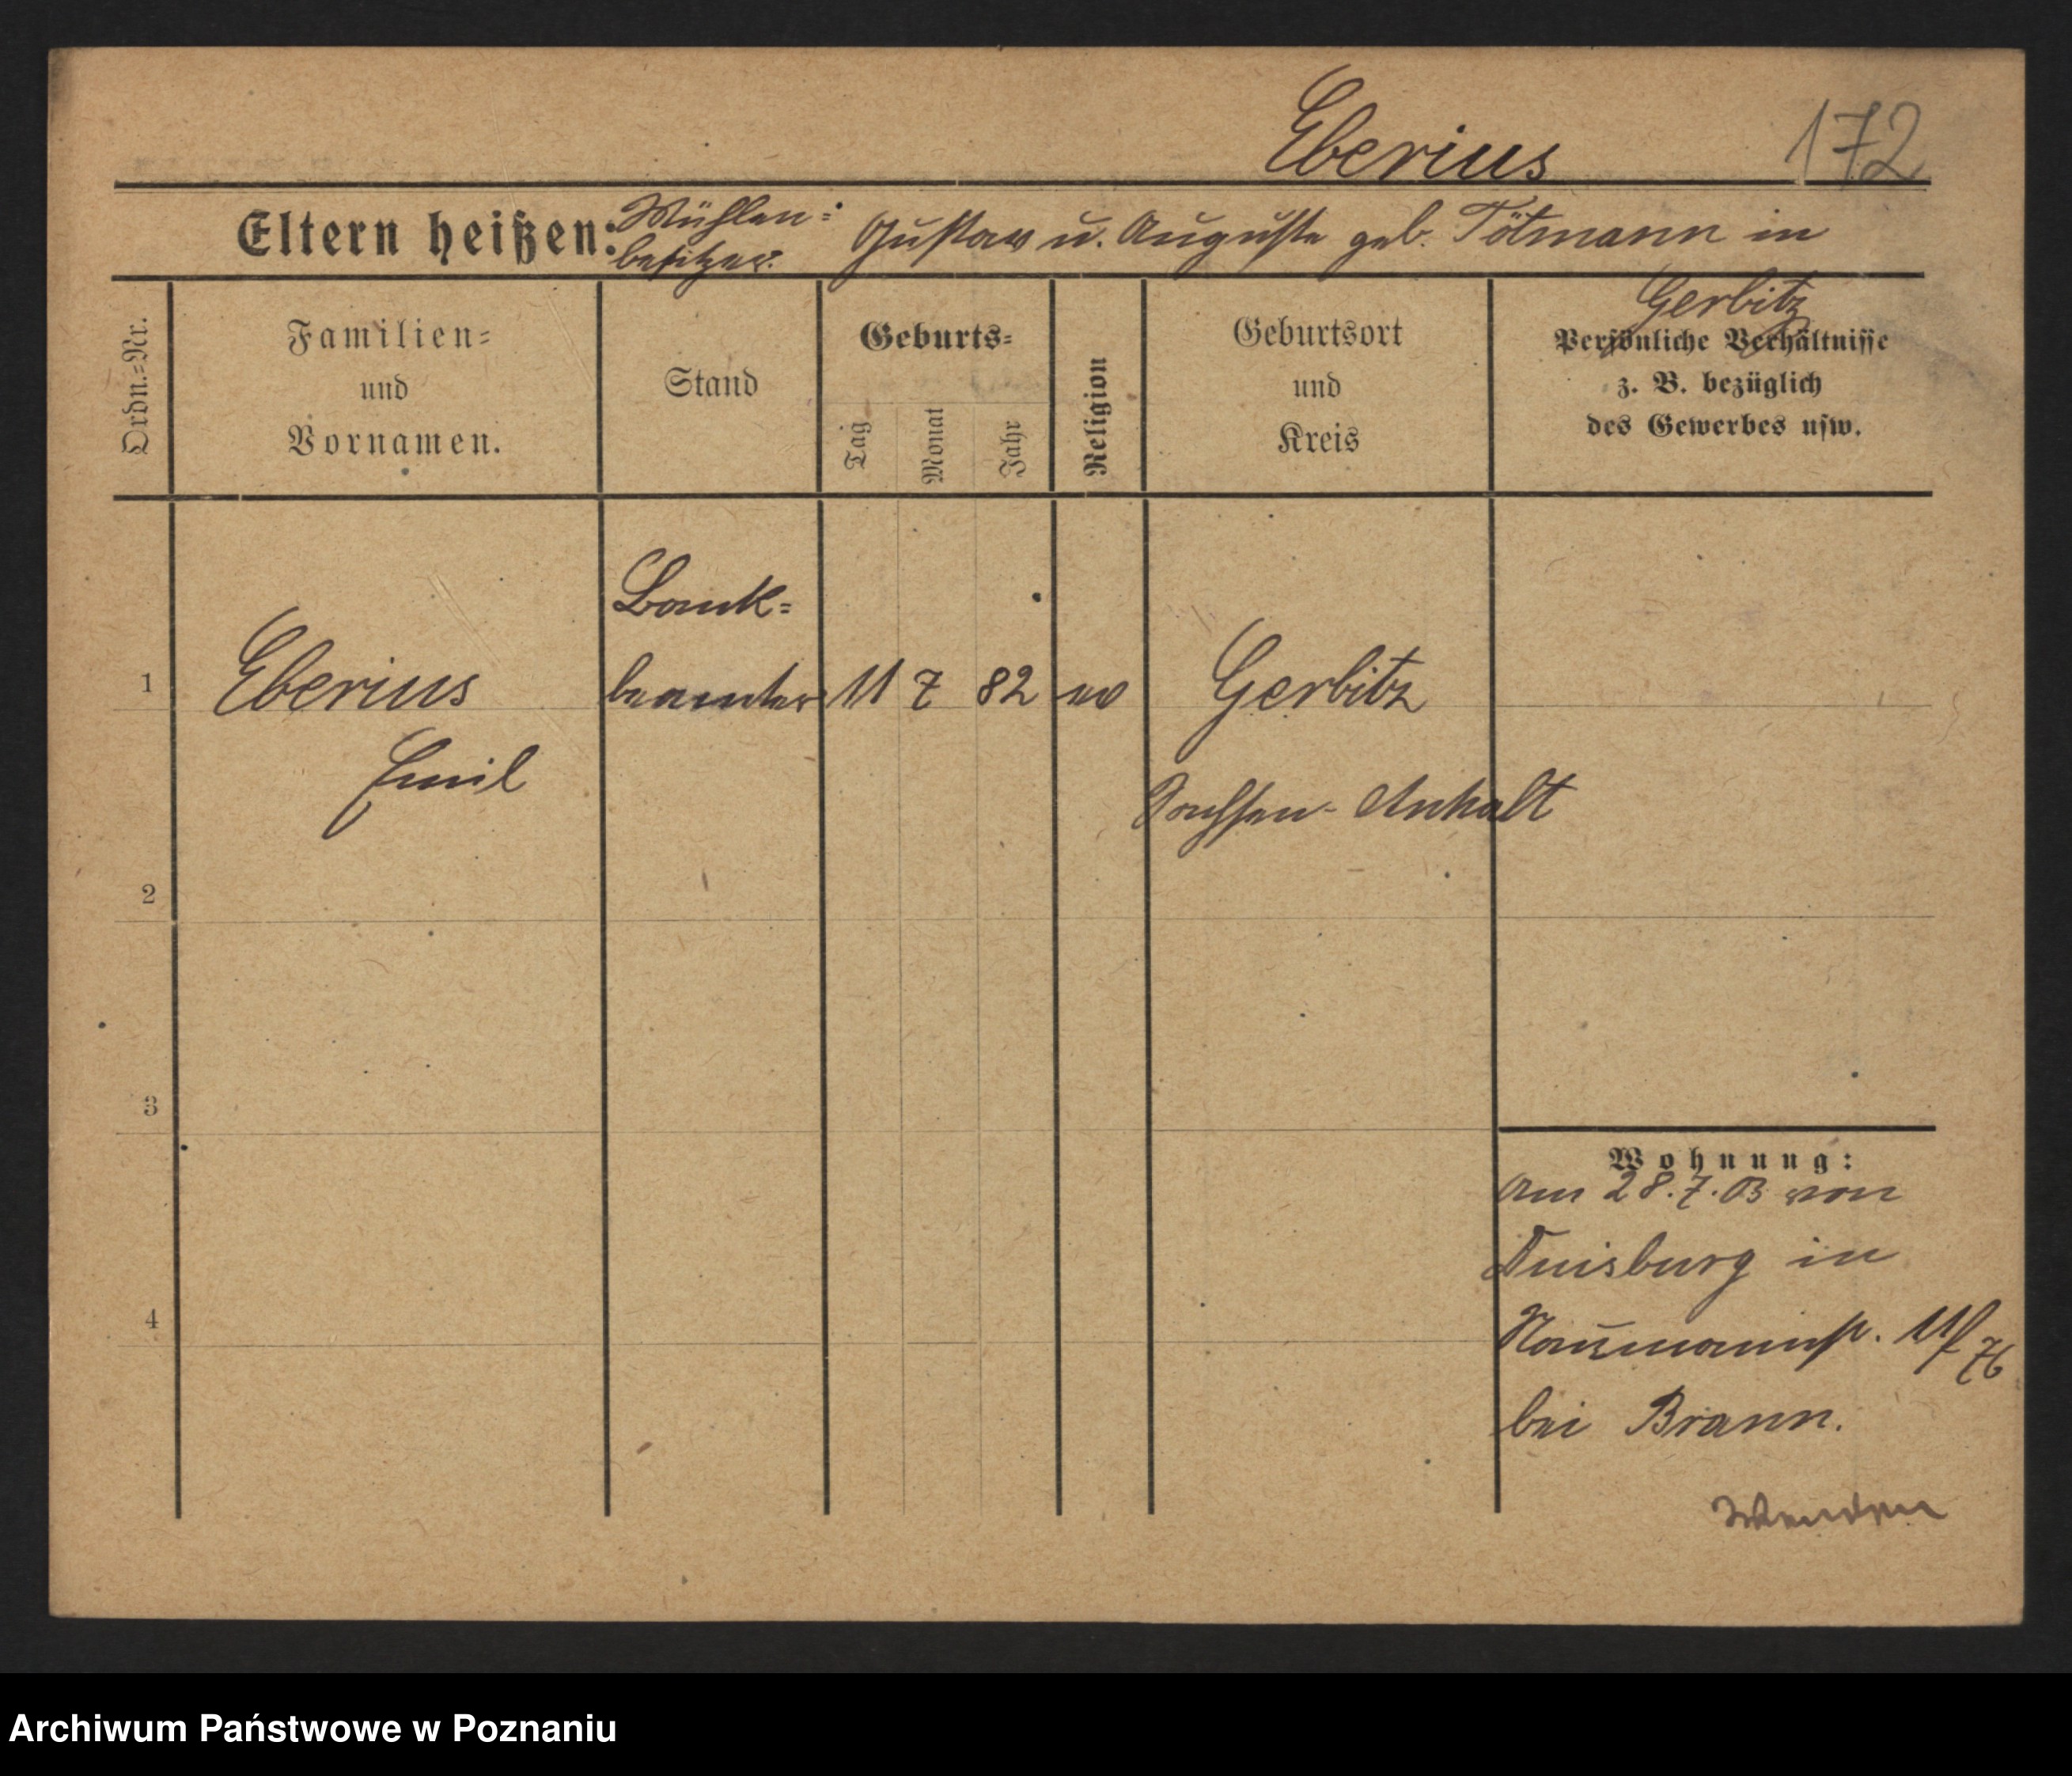 Eberius 172
Eltern heißen: Mühlen=
besitzer Gustav u. Auguste geb. Tötmann in
Gerbitz
Ordn.=Nr.
Familien=
und
Vornamen.
Stand
Geburts=
Tag
Monat
Jahr
Religion
Geburtsort
und
Kreis
Persönliche Verhältnisse
z. B. bezüglich
des Gewerbes usw.
Bank=
1 Eberius beamter 11 7 82 ev Gerbitz
Emil Sachsen-Anhalt
2
3
Wohnung:
am 28.7.03 von
Duisburg in
4
Naumannstr. 11/76
bei Brann.
Wenden
Archiwum Państwowe w Poznaniu